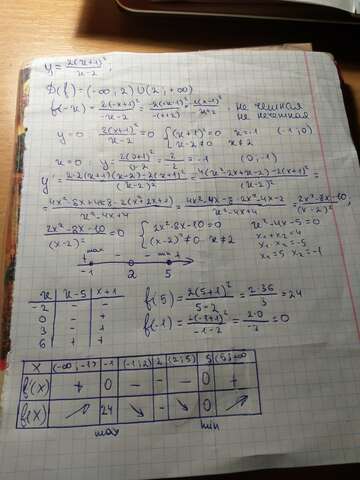 y = 2(x+1)² / x-2
D(f) = (-∞; 2) U (2; +∞)
f(-x) = 2(-x+1)² / -x-2 =
не четная
не нечетная
y=0 2(x+1)² / x-2 = 0 { (x+1)²=0 x=-1 (-1;0)
x-2≠0 x≠2
x=0: y = 2(0+1)² / 0-2 = 2 / -2 = -1 (0;-1)
y' = 2·2(x+1)(x-2)-2(x+1)² / (x-2)² = 4(x²-2x+x-2)-2(x+1)² / (x-2)² =
= 4x²-4x-8-2x²-4x-2 / x²-4x+4 = 2x²-8x-10 / (x-2)²
2x²-8x-10 / (x-2)² = 0 { 2x²-8x-10=0 x²-4x-5=0
(x-2)²≠0 x≠2 x₁+x₂=4
x₁·x₂=-5
x₁=5 x₂=-1
+ max - - min +
-1 2 5
x x-5 x+1
-2 - -
0 - +
3 - +
6 + +
f(5) = 2(5+1)² / 5-2 = 2·36 / 3 = 24
f(-1) = 2(-1+1)² / -1-2 = 2·0 / -3 = 0
x (-∞;-1) -1 (-1;2) 2 (2;5) 5 (5;+∞)
f'(x) + 0 - - - 0 +
f(x) ↗ 24 ↘ - ↘ 0 ↗
max min